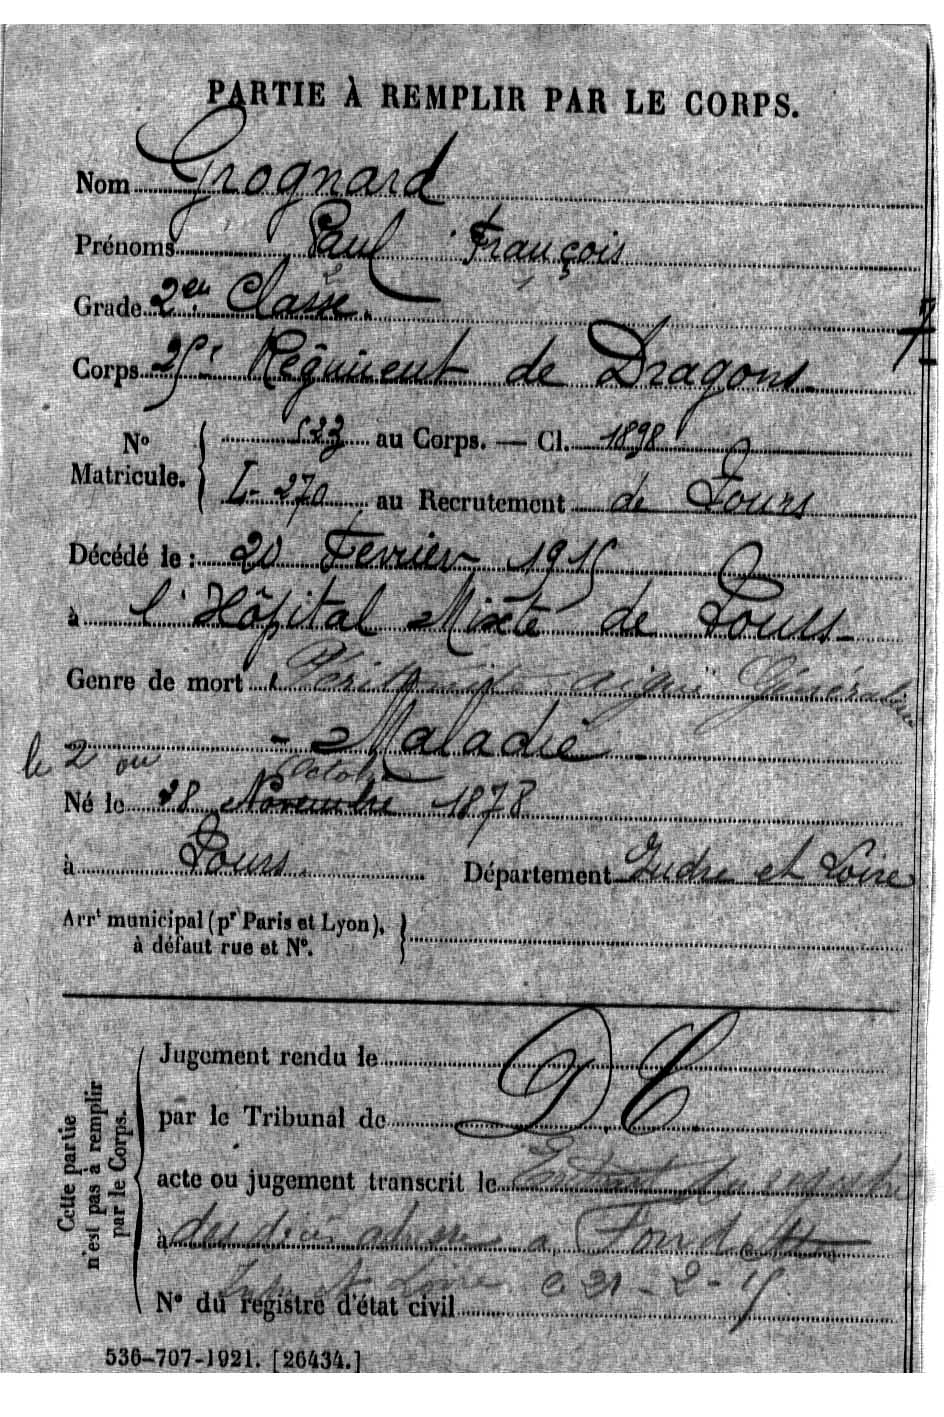 PARTIE À REMPLIR PAR LE CORPS.
Nom Grognard
Prénoms Paul François
Grade 2en Classe.
Corps 25e Régiment de Dragons
No Matricule. 523 au Corps. — Cl. 1898
L- 270 au Recrutement de Tours
Décédé le : 20 Fevrier 1915
à l'Hôpital Mixte de Tours
Genre de mort Péritonite aigue Généralisée
- Maladie -
le 2 ou
Octobre
Né le 28 Novembre 1878
à Tours. Département Indre et Loire
Arrt municipal (pr Paris et Lyon),
à défaut rue et No.
Cette partie
n'est pas à remplir
par le Corps.
Jugement rendu le
par le Tribunal de
D. C.
acte ou jugement transcrit le Extrait du registre
à des décès adressé a Fondettes
Indre et Loire
No du registre d'état civil
536-707-1921. [26434.]